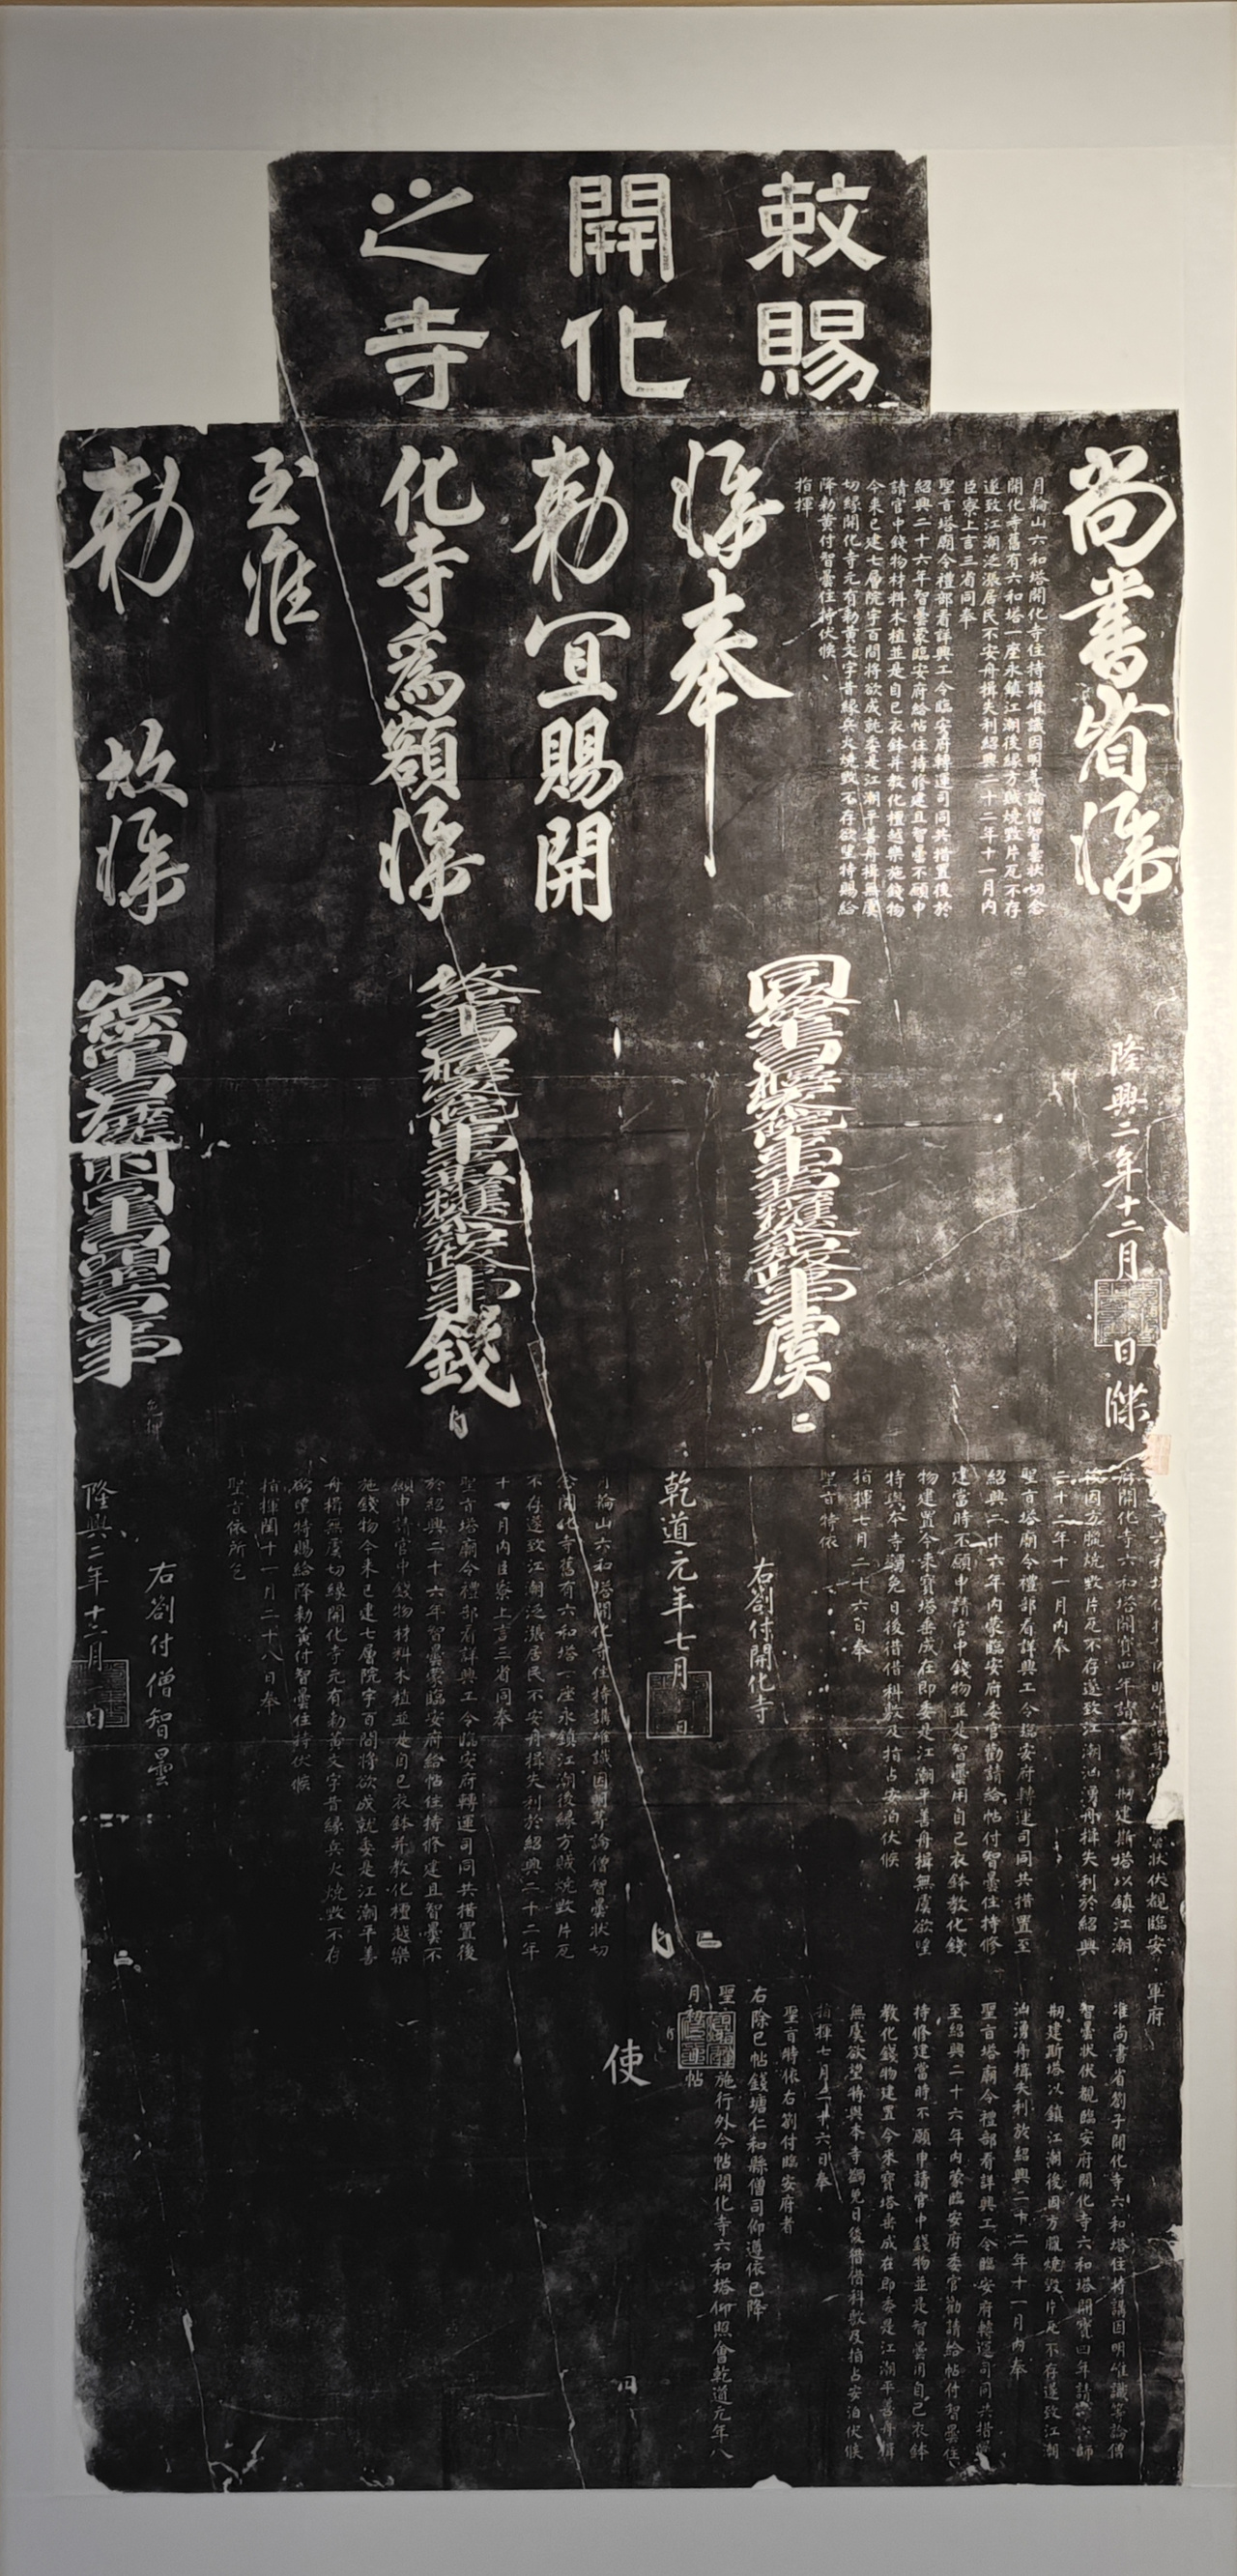 敕賜
開化
之寺
尚書省牒
月輪山六和塔開化寺住持講唯識因明等論僧智曇狀切念
開化寺舊有六和塔一座永鎮江潮後緣方賊燒毀片瓦不存
遂致江潮泛漲居民不安舟楫失利紹興二十二年十一月內
臣寮上言三省同奉
聖旨塔廟令禮部看詳興工令臨安府轉運司同共措置後於
紹興二十六年智曇蒙臨安府給帖住持修建且智曇不願申
請官中錢物材料木植並是自己衣鉢并教化檀越樂施錢物
今來已建七層院宇百間將欲成就委是江潮平善舟楫無虞
切緣開化寺元有勅黃文字昔緣兵火燒毀不存欲望特賜給
降勅黃付智曇住持伏候
指揮
牒奉
勅宜賜開
化寺為額牒
至准
勅 故牒
隆興二年十二月 日牒
虞
錢
府開化寺六和塔開寶四年請 刱建斯塔以鎮江潮
後因方臘燒毀片瓦不存遂致江潮汹湧舟楫失利於紹興
二十二年十一月內奉
聖旨塔廟令禮部看詳興工令臨安府轉運司同共措置至
紹興二十六年內蒙臨安府委官勸請給帖付智曇住持修
建當時不願申請官中錢物並是智曇用自己衣鉢教化錢
物建置今來寶塔垂成在即委是江潮平善舟楫無虞欲望
特與本寺蠲免日後借借科敷及指占安泊伏候
指揮七月二十六日奉
聖旨特依
右劄付開化寺
乾道元年七月 日
月輪山六和塔開化寺住持講唯識因明等論僧智曇狀切
念開化寺舊有六和塔一座永鎮江潮後緣方賊燒毀片瓦
不存遂致江潮泛漲居民不安舟楫失利於紹興二十二年
十一月內臣寮上言三省同奉
聖旨塔廟令禮部看詳興工令臨安府轉運司同共措置後
於紹興二十六年智曇蒙臨安府給帖住持修建且智曇不
願申請官中錢物材料木植並是自己衣鉢并教化檀越樂
施錢物今來已建七層院宇百間將欲成就委是江潮平善
舟楫無虞切緣開化寺元有勅黃文字昔緣兵火燒毀不存
欲望特賜給降勅黃付智曇住持伏候
指揮閏十一月二十八日奉
聖旨依所乞
右劄付僧智曇
隆興二年十二月一日
軍府
准尚書省劄子開化寺六和塔住持講因明唯識等論僧
智曇狀伏覩臨安府開化寺六和塔開寶四年請 師
刱建斯塔以鎮江潮後因方臘燒毀片瓦不存遂致江潮
汹湧舟楫失利於紹興二十二年十一月內奉
聖旨塔廟令禮部看詳興工令臨安府轉運司同共措置
至紹興二十六年內蒙臨安府委官勸請給帖付智曇住
持修建當時不願申請官中錢物並是智曇用自己衣鉢
教化錢物建置今來寶塔垂成在即委是江潮平善舟楫
無虞欲望特與本寺蠲免日後借借科敷及指占安泊伏候
指揮七月二十六日奉
聖旨特依右劄付臨安府者
右除已帖錢塘仁和縣僧司仰遵依已降
聖 施行外今帖開化寺六和塔仰照會乾道元年八
月 帖
使